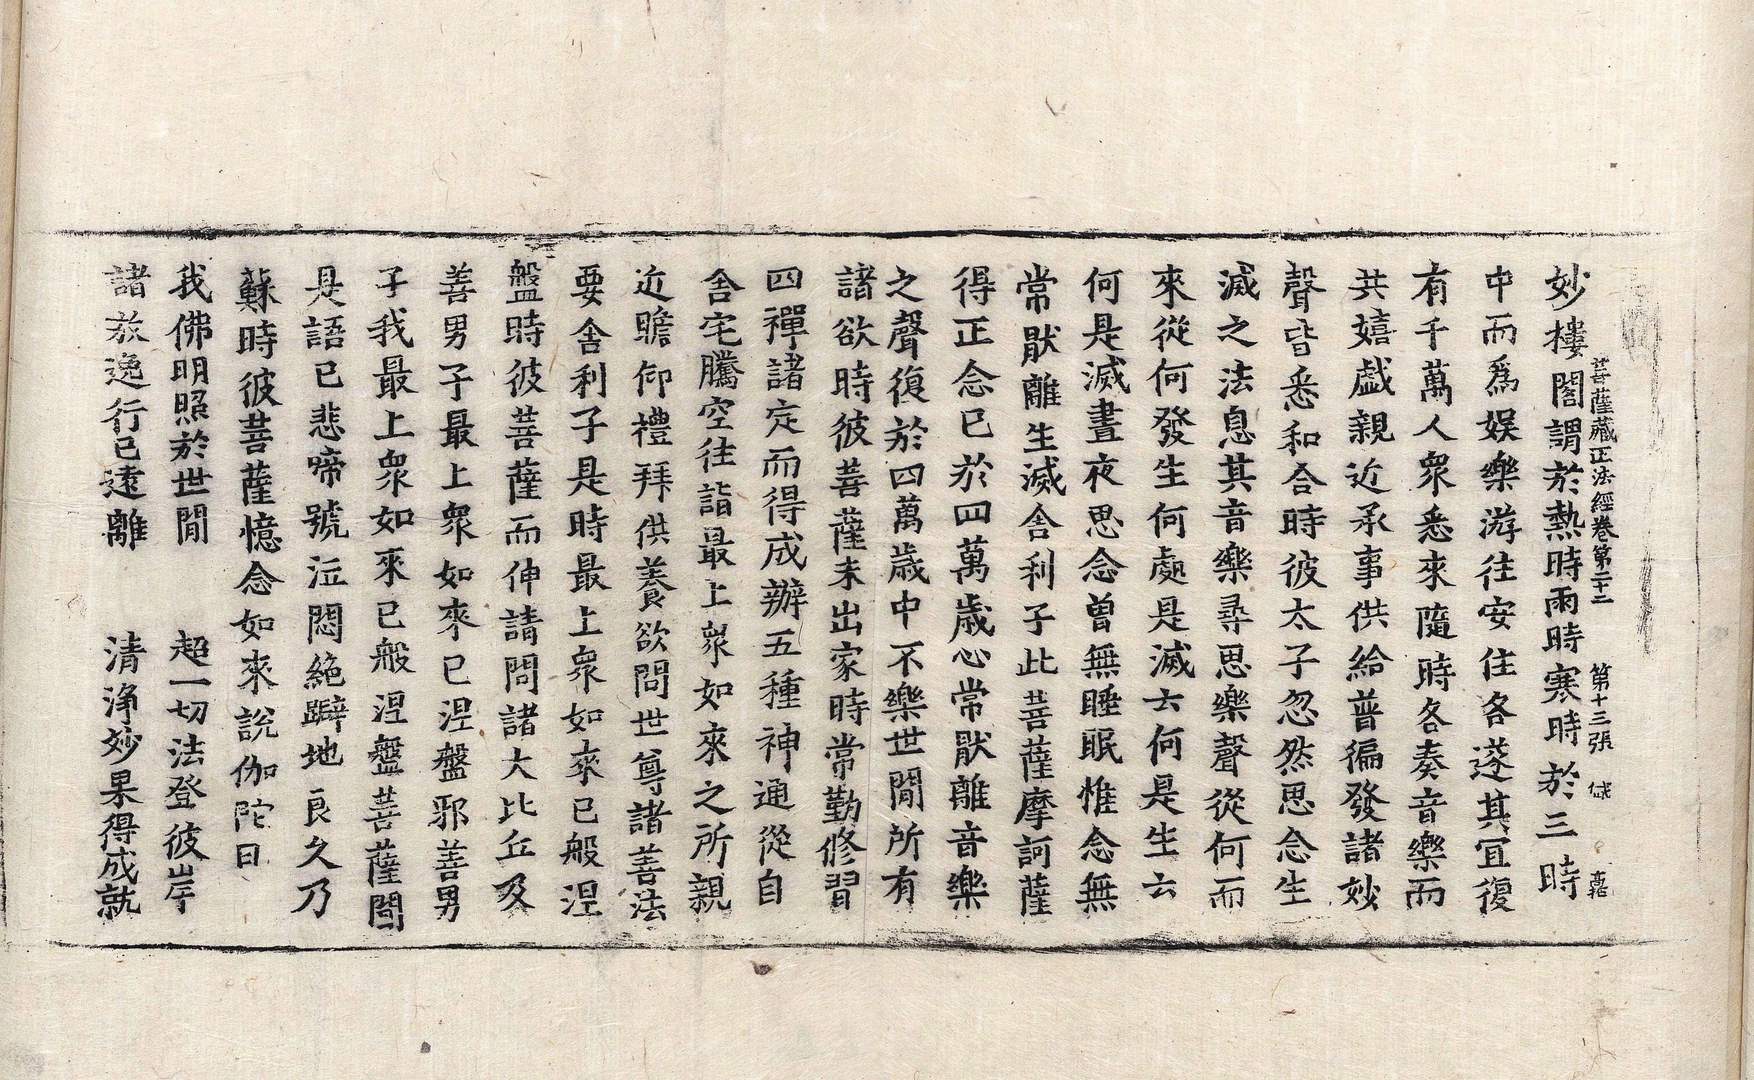 菩薩藏正法經卷第三十二　第十三張　俄　嘉
妙樓閣謂於熱時雨時寒時於三時
中而爲娛樂游往安住各遂其宜復
有千萬人衆悉來隨時各奏音樂而
共嬉戲親近承事供給普徧發諸妙
聲皆悉和合時彼太子忽然思念生
滅之法息其音樂尋思樂聲從何而
來從何發生何處是滅云何是生云
何是滅晝夜思念曾無睡眠惟念無
常猒離生滅舍利子此菩薩摩訶薩
得正念已於四萬歲心常猒離音樂
之聲復於四萬歲中不樂世閒所有
諸欲時彼菩薩未出家時常勤修習
四禪諸定而得成辦五種神通從自
舍宅騰空往詣最上衆如來之所親
近瞻仰禮拜供養欲問世尊諸善法
要舍利子是時最上衆如來已般涅
盤時彼菩薩而伸請問諸大比丘及
善男子最上衆如來已涅盤邪善男
子我最上衆如來已般涅盤菩薩聞
是語已悲啼號泣悶絕躃地良久乃
蘇時彼菩薩憶念如來說伽陀曰
我佛明照於世閒　超一切法登彼岸
諸放逸行已遠離　清淨妙果得成就